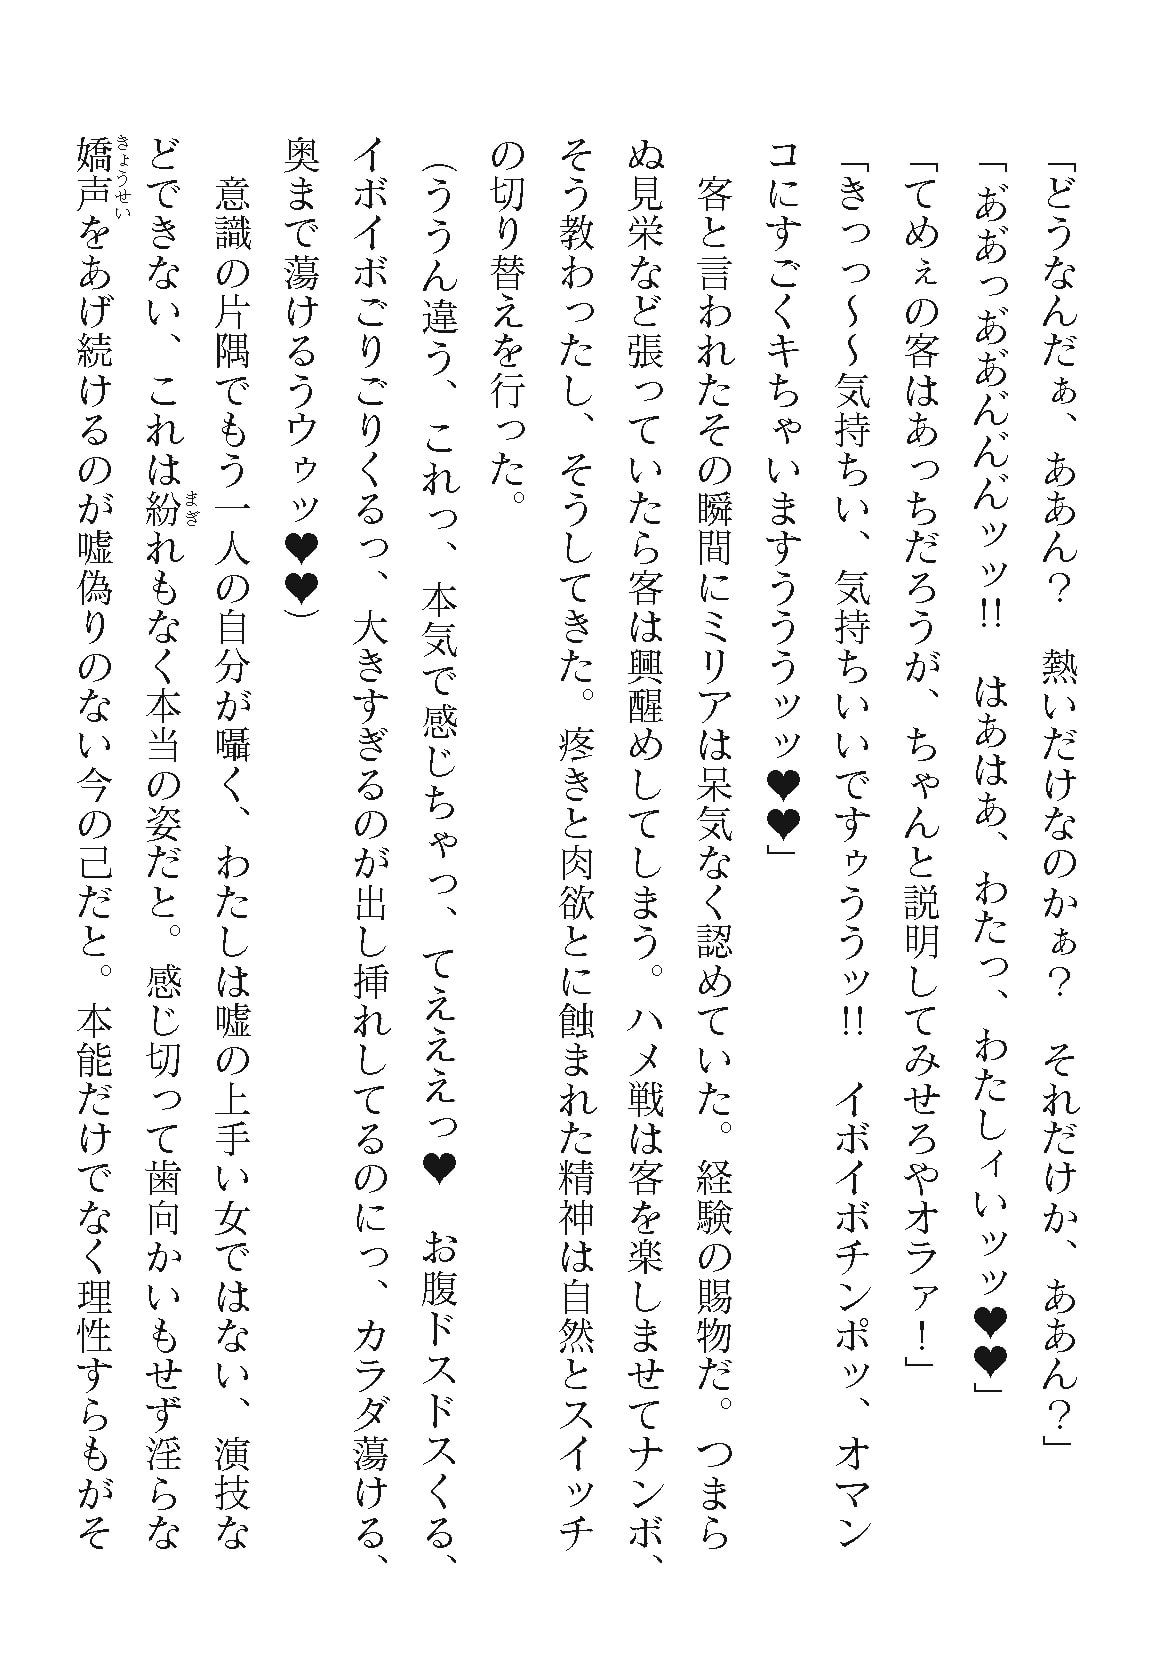 「どうなんだぁ、ああん？　熱いだけなのかぁ？　それだけか、ああん？」
「あ゛あ゛っあ゛あ゛ん゛ん゛ん゛ッッ!!　はあはあ、わたっ、わたしィいッッ♥♥」
「てめぇの客はあっちだろうが、ちゃんと説明してみせろやオラァ！」
「きっっ～～気持ちい、気持ちいいですゥううッ!!　イボイボチンポッ、オマン
コにすごくキちゃいますうううッッ♥♥」
　客と言われたその瞬間にミリアは呆気なく認めていた。経験の賜物だ。つまら
ぬ見栄など張っていたら客は興醒めしてしまう。ハメ戦は客を楽しませてナンボ、
そう教わったし、そうしてきた。疼きと肉欲とに蝕まれた精神は自然とスイッチ
の切り替えを行った。
（ううん違う、これっ、本気で感じちゃっ、てえええっ♥　お腹ドスドスくる、
イボイボごりごりくるっ、大きすぎるのが出し挿れしてるのにっ、カラダ蕩ける、
奥まで蕩けるうウゥッ♥♥）
　意識の片隅でもう一人の自分が囁く、わたしは嘘の上手い女ではない、演技な
どできない、これは紛れもなく本当の姿だと。感じ切って歯向かいもせず淫らな
嬌声をあげ続けるのが嘘偽りのない今の己だと。本能だけでなく理性すらもがそ
まぎ
きょうせい